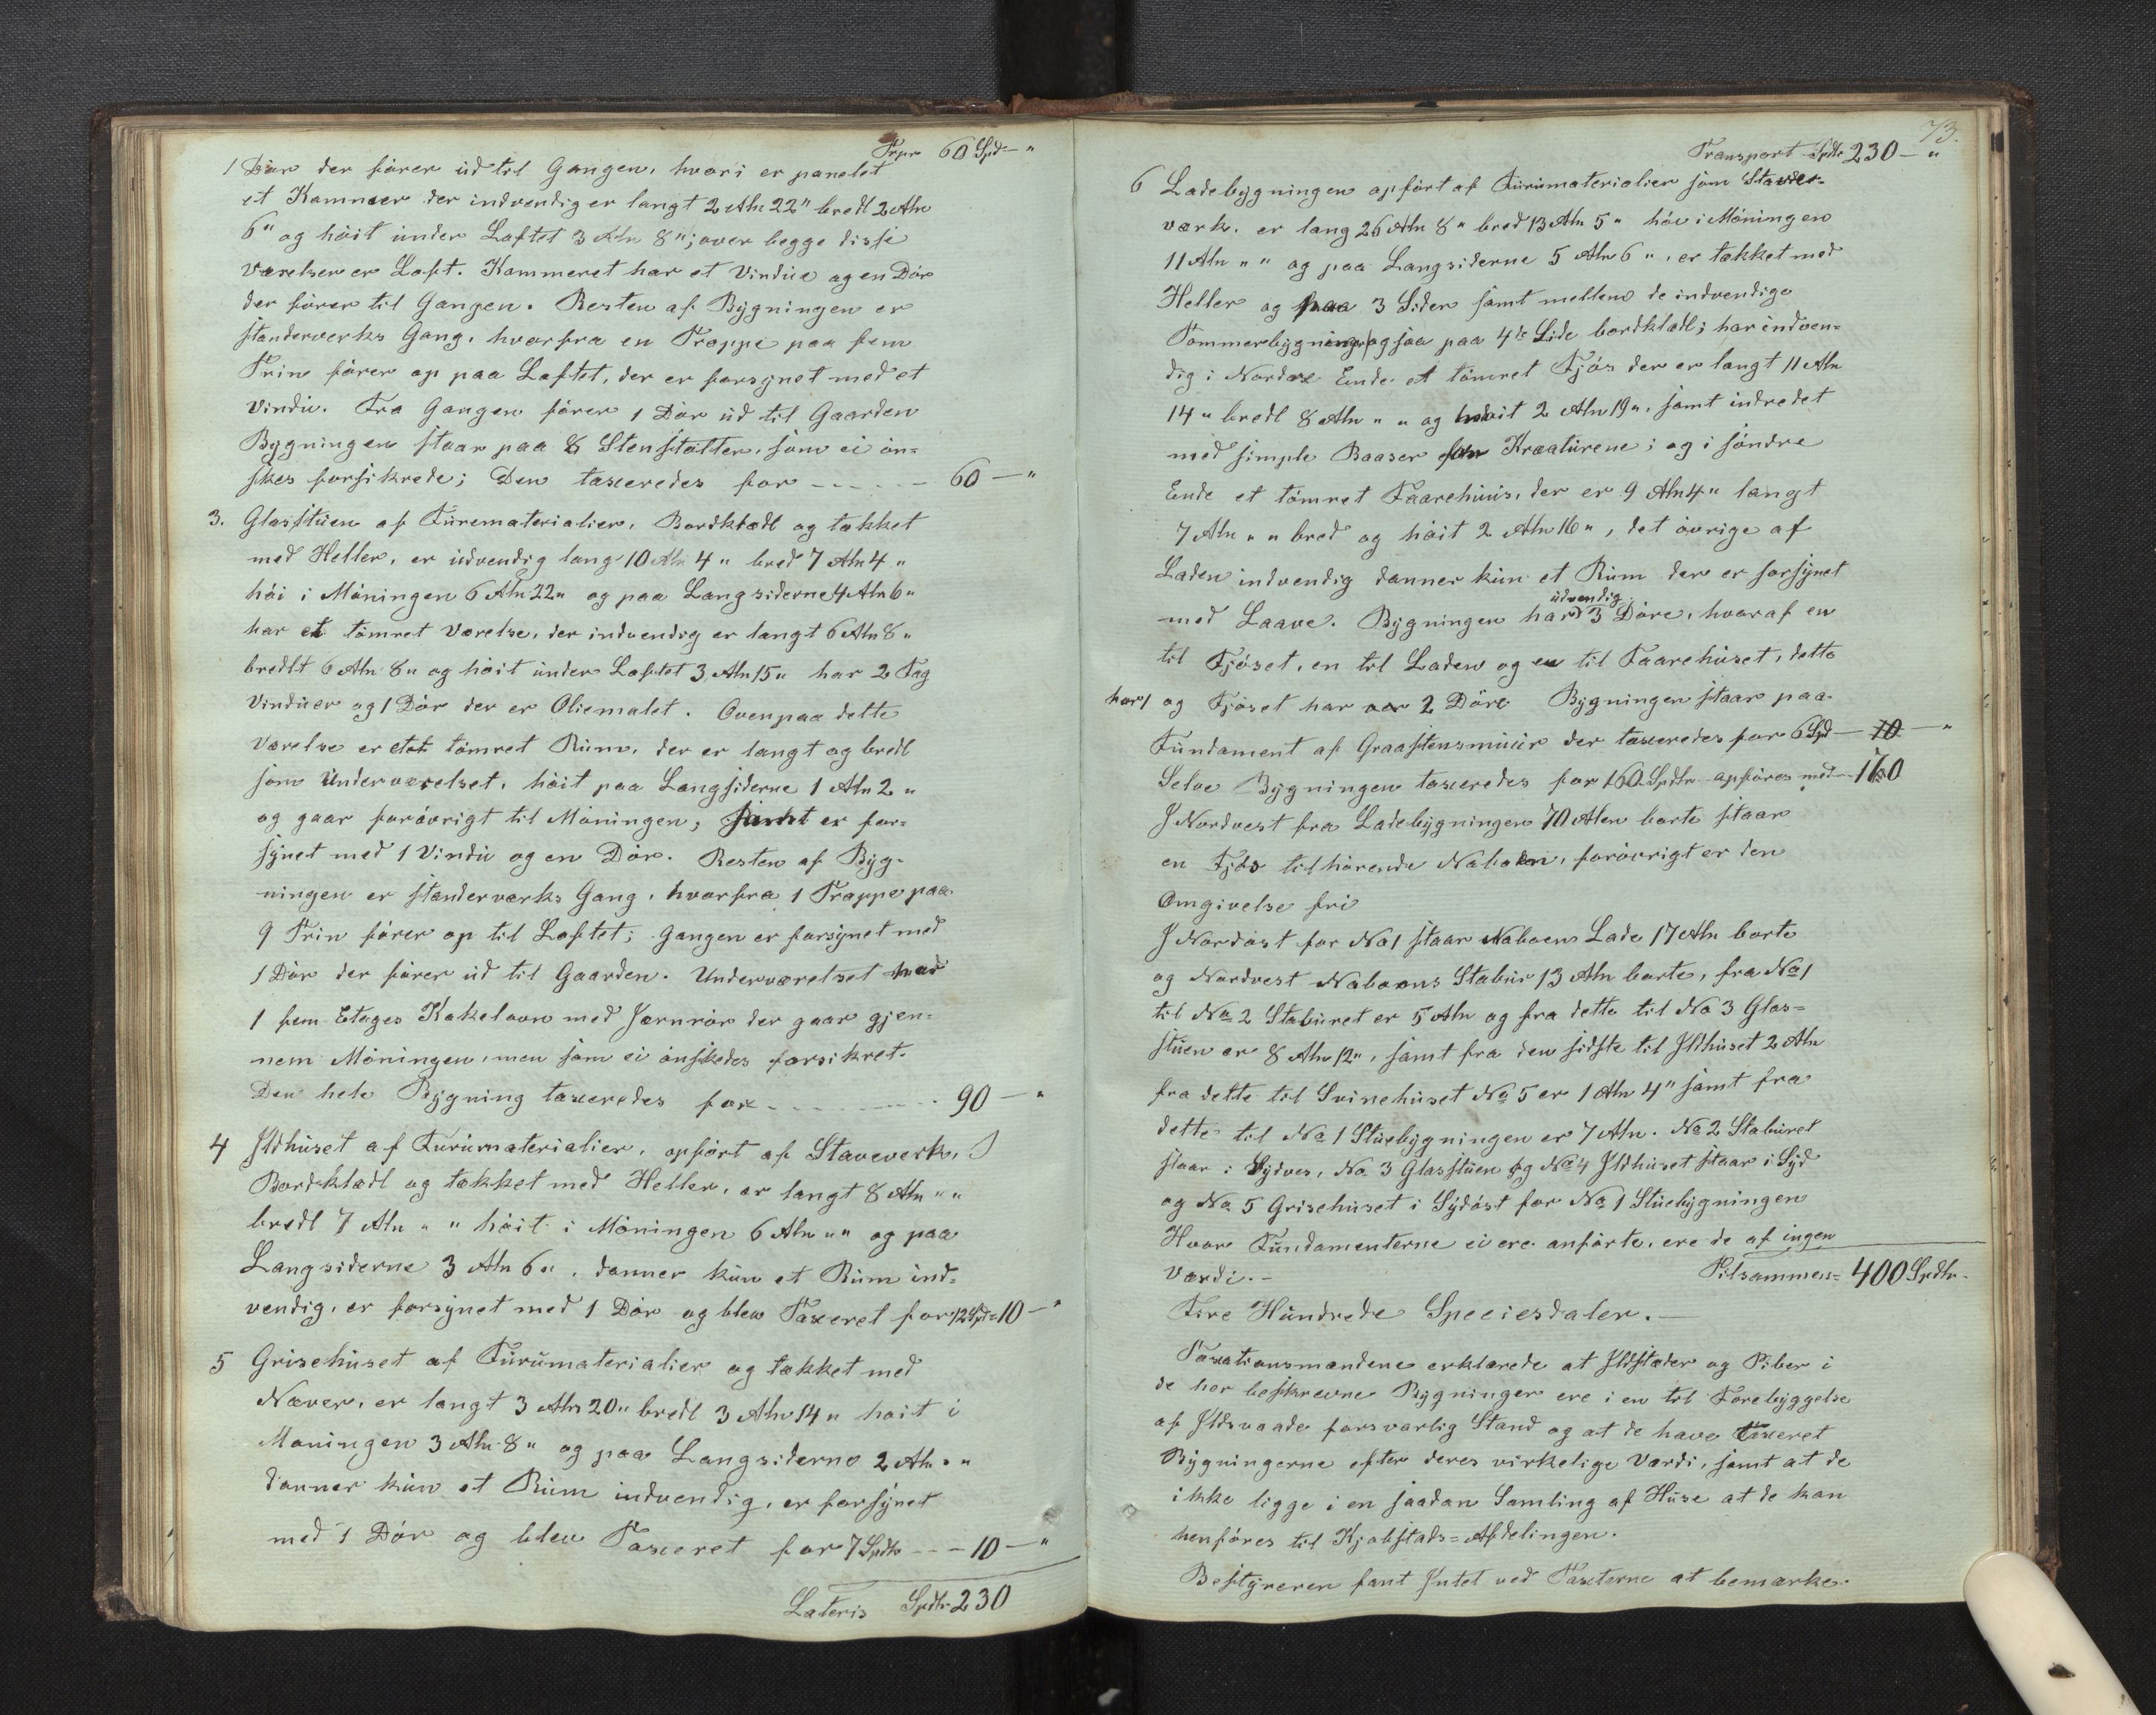 Trpr 60 Spd – "
1 Dør der fører ud til Gangen, hvori er panelet
et Kammer der indvendig er langt 2 Aln 22" bredt 2 Aln
6" og høit under Loftet 3 Aln 8"; over begge disse
Værelser er Loft. Kammeret har et Vindue og en Dør
der fører til Gangen. Resten af Bygningen er
standerverks Gang, hvorfra en Trappe paa fem
Trin fører op paa Loftet, der er forsynet med et
Vindu. Fra Gangen fører 1 Dør ud til Gaarden
Bygningen staar paa 8 Stenstolter, som ei øn=
skes forsikrede; Den taxeredes for ----- 60 – "
3. Glasstuen af Furematerialier, Bordklædt og tækket
med Heller, er udvendig lang 10 Aln 4 " bred 7 Aln 4 "
høi i Møningen 6 Aln 22" og paa Langsiderne 4 Aln 6"
har et tømret Værelse, der indvendig er langt 6 Aln 8"
bredt 6 Aln 8" og høit under Loftet 3 Aln 15" har 2 Fag
Vinduer og 1 Dør der er Oliemalet. Ovenpaa dette
Værelse er et tømret Rum, der er langt og bredt
som Underværelset, høit paa Langsiderne 1 Aln 2 "
og gaar forøvrigt til Møningen, samt er for=
synet med 1 Vindu og en Dør. Resten af Byg=
ningen er standerværks Gang, hvorfra 1 Trappe paa
9 Trin fører op til Loftet; Gangen er forsynet med
1 Dør der fører ud til Gaarden. Underværelset har
1 fem Etages Kakelovn med Jernrør der gaar gjen=
nem Møningen, men som ei ønskedes forsikret.
Den hele Bygning taxeredes for ------- 90 – "
4 Ildhuset af Furumaterialier, opført af Staveverk,
Bordklædt og tækket med Heller, er langt 8 Aln " "
bredt 7 Aln " " høit i Møningen 6 Aln " " og paa
Langsiderne 3 Aln 6 ", danner kun et Rum ind=
vendig, er forsynet med 1 Dør og blev Taxeret for 12 Spd = 10 – "
5 Grisehuset af Furumaterialier og tækket med
Næver, er langt 3 Aln 20" bredt 3 Aln 14 " høit i
Møningen 3 Aln 8 " og paa Langsiderne 2 Aln " "
danner kun et Rum indvendig, er forsynet
med 1 Dør og blev Taxeret for 7 Spdlr --- 10 – "
Lateris Spdlr 230
73.
Transport Spdlr 230 – "
6 Ladebygningen opført af Furumaterialier som Stander=
værk, er lang 26 Aln 8 " bred 13 Aln 5 " høi i Møningen
11 Aln " " og paa Langsiderne 5 Aln 6 ", er tækket med
Heller og paa 3 Sider samt mellem de indvendige
Tømmerbygninger ogsaa paa 4de Side bordklædt; har indven=
dig i Nordre Ende et tømret Fjøs der er langt 11 Aln
14 " bredt 8 Aln " " og høit 2 Aln 19", samt indredet
med simple Baaser for Kreaturene; og i søndre
Ende et tømret Faarehuus, der er 9 Aln 4 " langt
7 Aln " " bred og høit 2 Aln 16 ", det øvrige af
Laden indvendig danner kun et Rum der er forsynet
udvendig
med Laave. Bygningen har 3 Døre, hvoraf en
til Fjøset, en til Laden og en til Faarehuset, dette
har 1 og Fjøset har 2 Döre Bygningen staar paa
Fundament af Graastensmuur der taxeredes for 6 Spd – 10 – "
Selve Bygningen taxeredes for 160 Spdlr opføres med – 160
I Nordvest fra Ladebygningen 70 Alen borte staar
en Fjøs tilhørende Naboen, forøvrigt er den
Omgivelse fri
I Nordøst for No 1 staar Naboens Lade 17 Aln borte
og Nordvest Naboens Stabur 13 Aln borte, fra No 1
til No 2 Staburet er 5 Aln og fra dette til No 3 Glas=
stuen er 8 Aln 12", samt fra den sidste til Ildhuset 2 Aln
fra dette til Svinehuset No 5 er 1 Aln 4" samt fra
dette til No 1 Stuebygningen er 7 Aln. No 2 Staburet
staar i Sydves, No 3 Glasstuen og No 4 Ildhuset staar i Syd
og No 5 Grisehuset i Sydøst for No 1 Stuebygningen
Hvor Fundamenterne ei ere anførte, ere de af ingen
Værdi. – Tilsammen = 400 Spdlr.
Fire Hundrede Speciesdaler. –
Taxationsmændene erklærede at Ildstæder og Piber i
de her beskrevne Bygninger ere i en til Forebyggelse
af Ildsvaade forsvarlig Stand og at de have taxeret
Bygningerne efter deres virkelige Værdi, samt at de
ikke ligge i en saadan Samling af Huse at de kan
henføres til Kjøbstads=Afdelingen.
Bestyreren fant Intet ved Taxterne at bemærke.